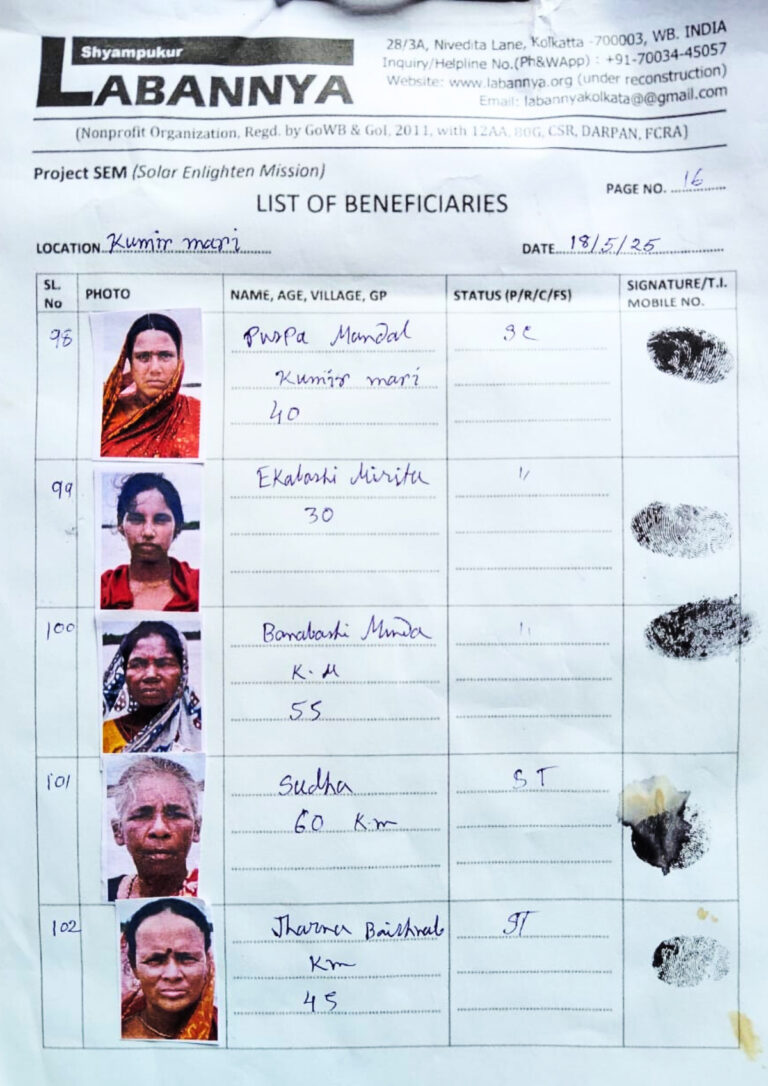 Shyampukur
LABANNYA
28/3A, Nivedita Lane, Kolkatta -700003, WB. INDIA
Inquiry/Helpline No.(Ph&WApp) : +91-70034-45057
Website: www.labannya.org (under reconstruction)
Email: labannyakolkata@@gmail.com
(Nonprofit Organization, Regd. by GoWB & GoI, 2011, with 12AA, 80G, CSR, DARPAN, FCRA)
Project SEM (Solar Enlighten Mission)
PAGE NO. 16
LIST OF BENEFICIARIES
LOCATION Kumir mari
DATE 18/5/25
SL. No PHOTO NAME, AGE, VILLAGE, GP STATUS (P/R/C/FS) SIGNATURE/T.I. MOBILE NO.
98 Puspa Mandal SC
Kumir mari
40
99 Ekabashi "
30
100 Banabashi Munda "
K. M
55
101 Sudha ST
60 K.m
102 Jharna Baishnab ST
Km
45